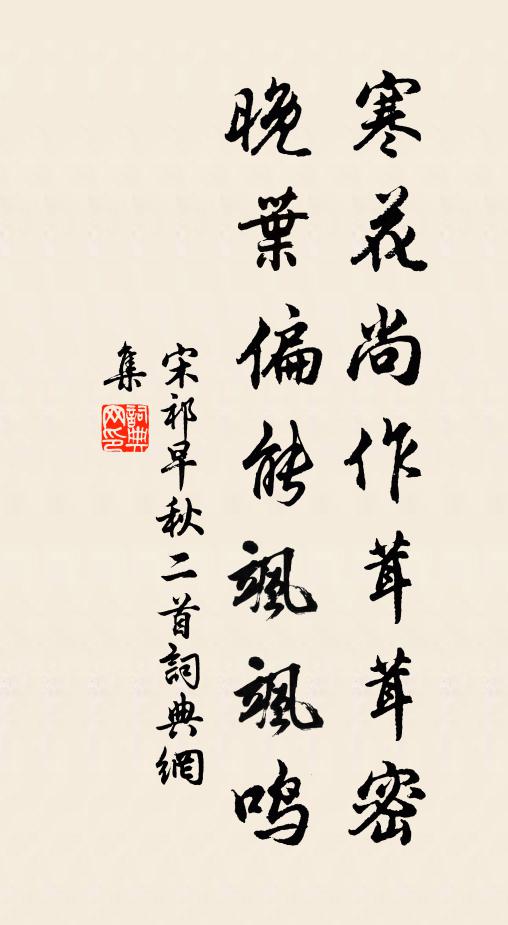 寒花尚作茸茸密
晚葉偏能颯颯鳴
宋祁早秋二首詞典網
集
詞典网印